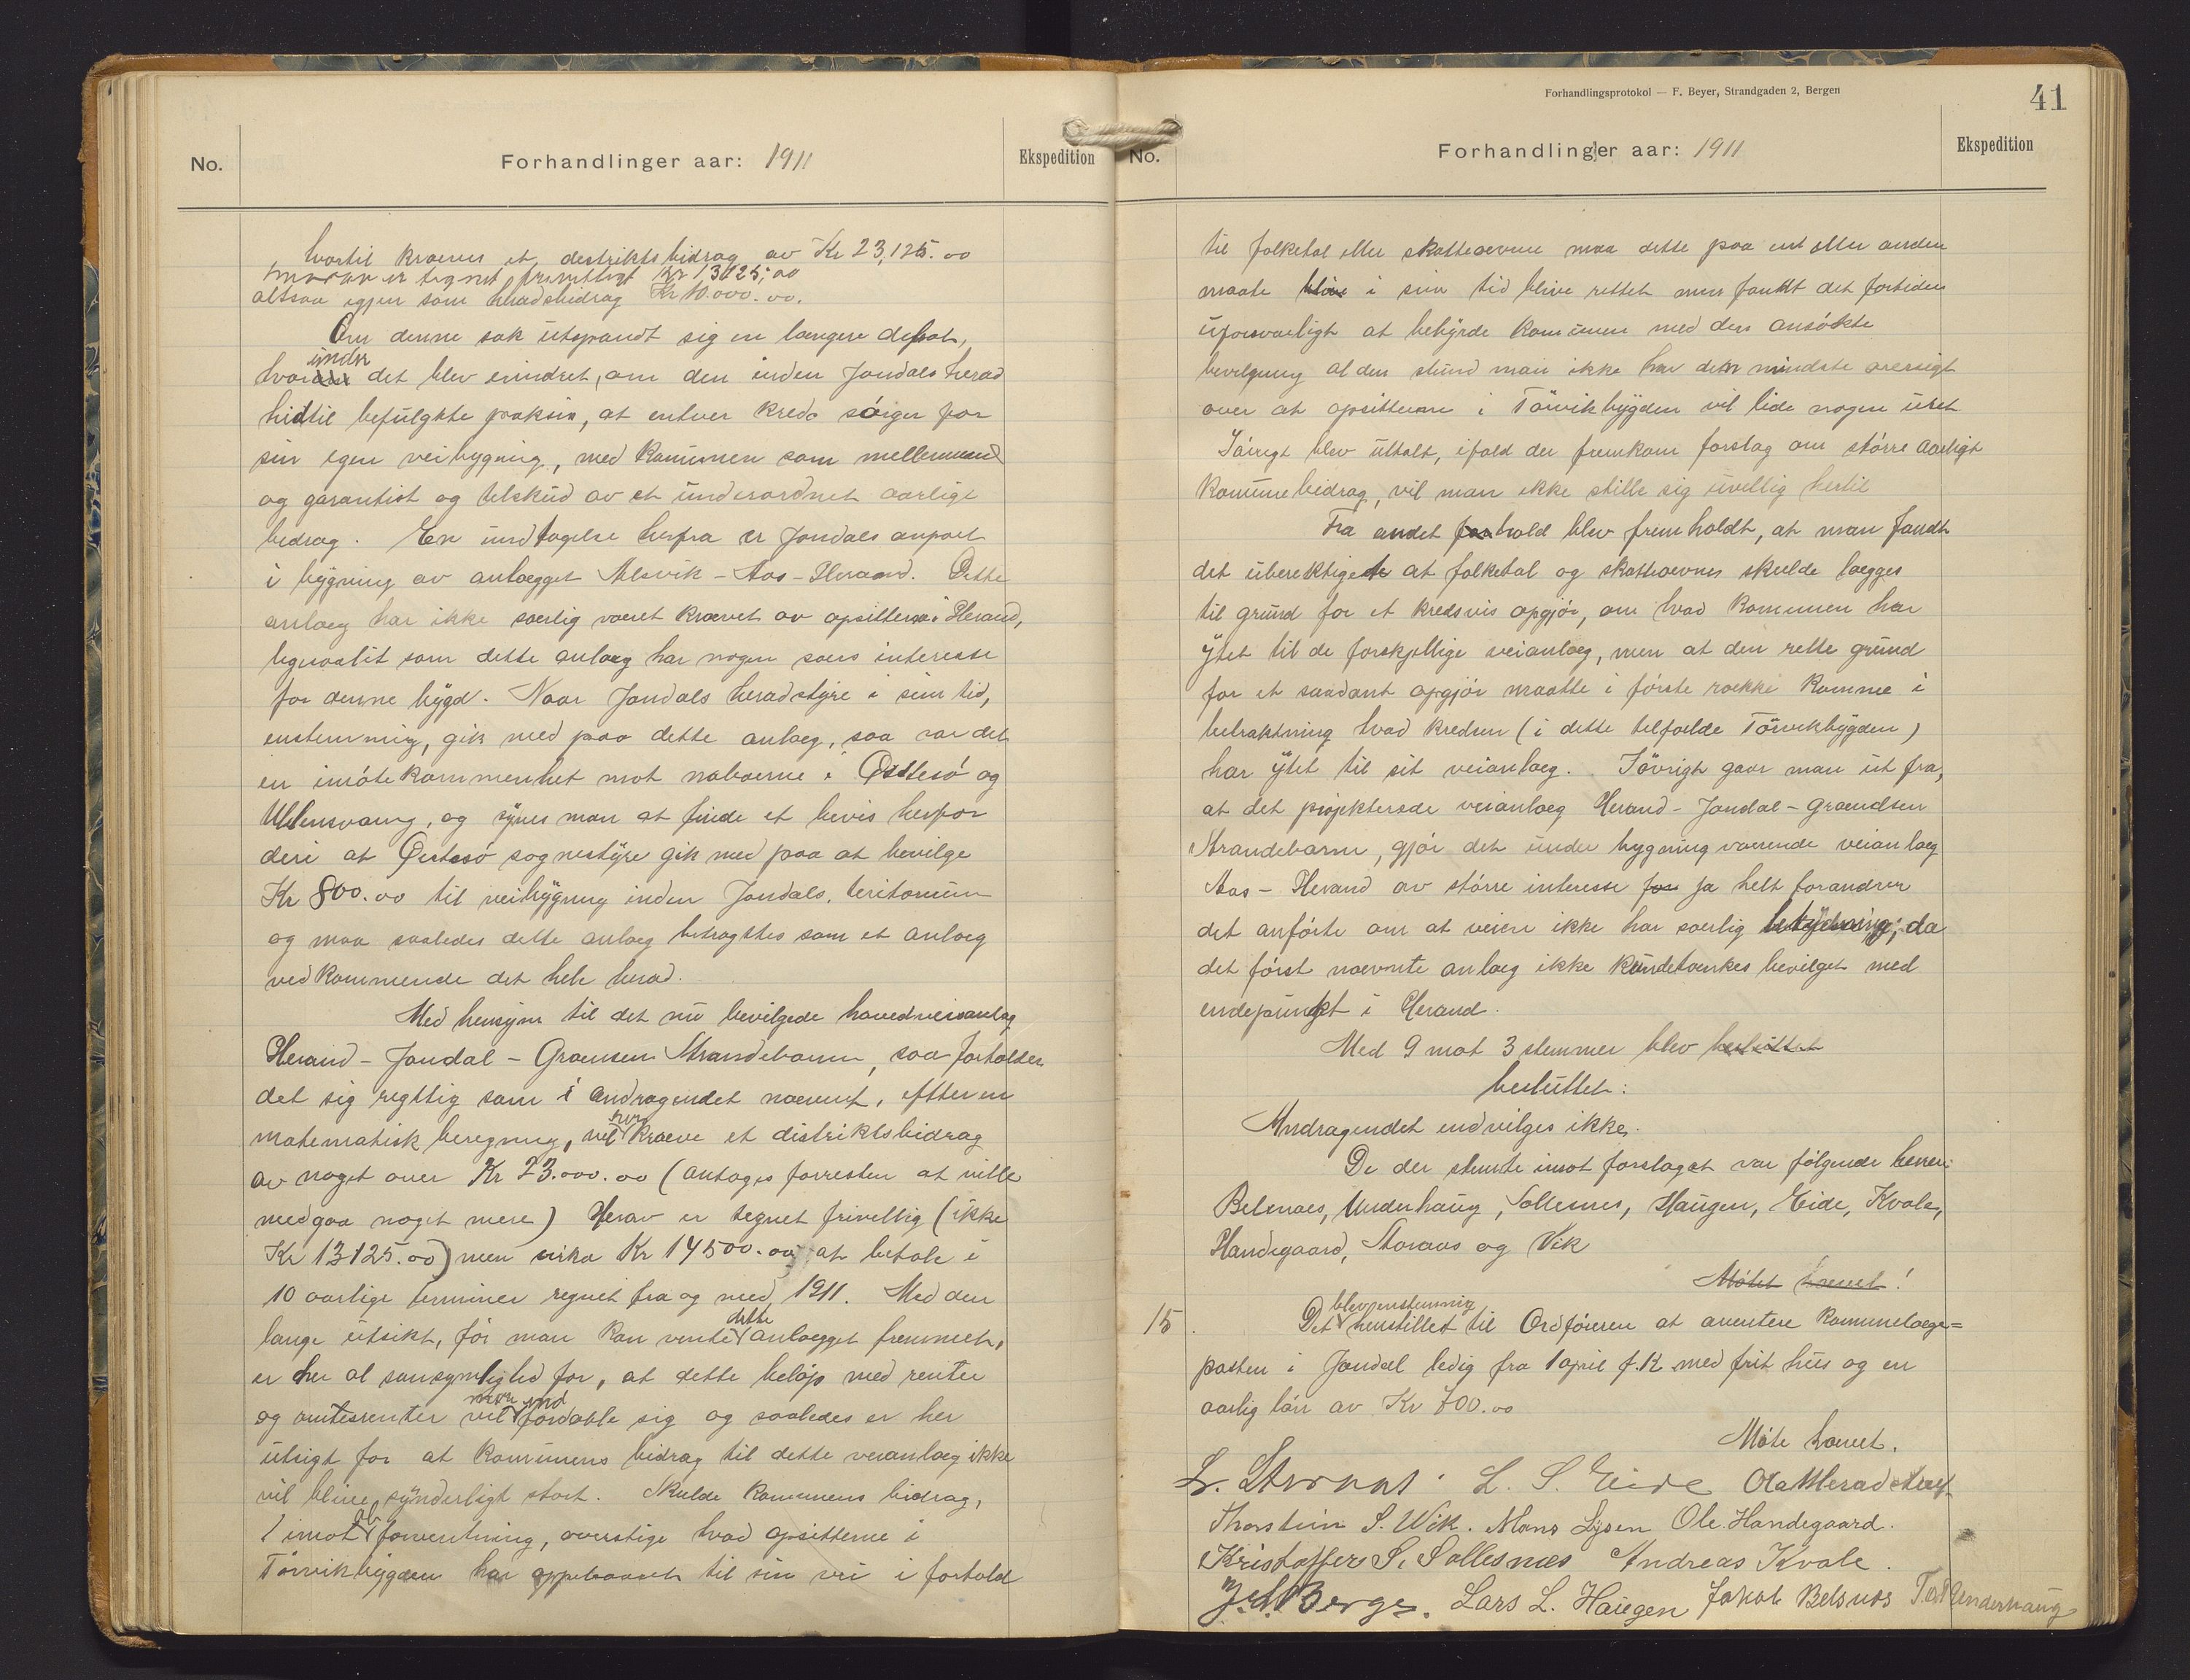 No.
Forhandlinger aar: 1911
Ekspedition
hvortil kræves et destriktsbidrag av Kr 23,125.00
hvorav er tegnet frivilligt Kr 13125,00
altsaa igjen som heradsbidrag Kr 10.000.00.
Om denne sak utspandt sig en længere debat,
hvorunder det blev erindret, om den inden Jondals herad
hidtil befulgkte praksis, at enhver kreds sörger for
sin egen veibygning, med kommunen som mellemmand
og garantist og tilskud av et underordnet aarlige
bedrag. En undtagelse herfra er Jondals anpart
i bygning av anlægget Alsvik - Aas - Heraand. Dette
anlæg har ikke særlig været krævet av opsitterne i Herand,
ligesaalit som dette anlæg har nogen sœrs interesse
for denne bygd. Naar Jondals heradstyre i sin tid,
enstemmig, gik med paa dette anlæg, saa var det
en imötekommenhet mot naboerne i Östesö og
Ullensvang, og synes man at finde et bevis herfor
deri at Östesö sognestyre gik med paa at bevilge
Kr 800.00 til veibygning inden Jondals. teritorium
og maa saaledes dette anlæg betragtes som et anlæg
vedkommende det hele herad.
Med hensyn til det nu bevilgede hovedveianlæg
Herand - Jondal - Grænsen Strandebarm, saa forholder
det sig regttig som i andragendet nævnt, efter en
matematisk beregning, vil her kræve et distriktsbidrag
av noget over Kr 23.000.00 (antages forresten at ville
medgaa noget mere) Herav er tegnet frivellig (ikke
Kr 13125.00) men cirka Kr 14500.00, at betale i
10 aarlige terminer regnet fra og med 1911. Med den
lange utsikt, för man kan vente dette anlægget fremmet,
er her al sansynlighed for, at dette belöp med renter
og rentesrenter vil mere end fordoble sig og saaledes er her
utsigt for at kommunens bidrag til dette veianlæg ikke
vil blive synderligt stort. Skulde kommunens bidrag,
imot al forventning, overstige hvad opsitterne i
Törvikbygden har oppebaaret til sin vei i forhold
Forhandlingsprotokol — F. Beyer, Strandgaden 2, Bergen
41
No.
Forhandlinger aar: 1911
Ekspedition
til folketal eller skatteævne maa dette paa ent eller anden
maate blive i sin tid blive rettet men fandt det fortiden
uforsvarligt at bebyrde kommunen med den ansökte
bevilgning al den stund man ikke har den mindste oversigt
over at opsitterne i Törvikbygden vil lide nogen uret
Iövrigt blev uttalt, ifald der fremkom forslag om större aarligt
kommunebidrag, vil man ikke stille sig uvillig hertil
Fra andet forhold blev fremholdt, at man fandt
det uberektigede at folketal og skatteævnes skulde lægges
til grund for et kredsvis opgjör, om hvad kommunen har
ytet til de forskjellige veianlæg, men at den rette grund
for et saadant opgjör maatte i förste rækki komme i
betraktning hvad kredsen (i dette tilfælde Törvikbygden)
har ytet til sit veianlæg. Iövrigt gaar man ut fra,
at det projekterede veianlæg Herand - Jondal - Grændsen
Strandebarm, gjör det under bygning værende veianlæg
Aas - Herand av större interesse for ja helt forandrer
det anförte om at veien ikke har særlig betydning; da
det först nævnte anlæg ikke kunde tænkes bevilget med
endepunkt i Herand.
Med 9 mot 3 stemmer blev besluttet
besluttet:
Andragendet indvilges ikke.
De der stemte imot forslaget var følgende herrer:
Belsnæs, Underhaug, Sollesnes, Haugen, Eide, Kvale,
Handegaard, Storaas og Vik
Mötet hævet!
15.
Det blev enstemmig henstillet til Ordföreren at avertere kommunelæge=
posten i Jondal ledig fra 1 april f.K. med frit hus og en
aarlig lön av Kr 700.00
Möte hævet.
L. Storaas L. S. Eide Ola Heradstveit
Thorstein S. Wik. Mons Lysen Ole Handegaard.
Kristoffer S. Sollesnes Andreas Kvale.
J. A. Berge. Lars L. Haugen Jakob Belsnes T. Underhaug